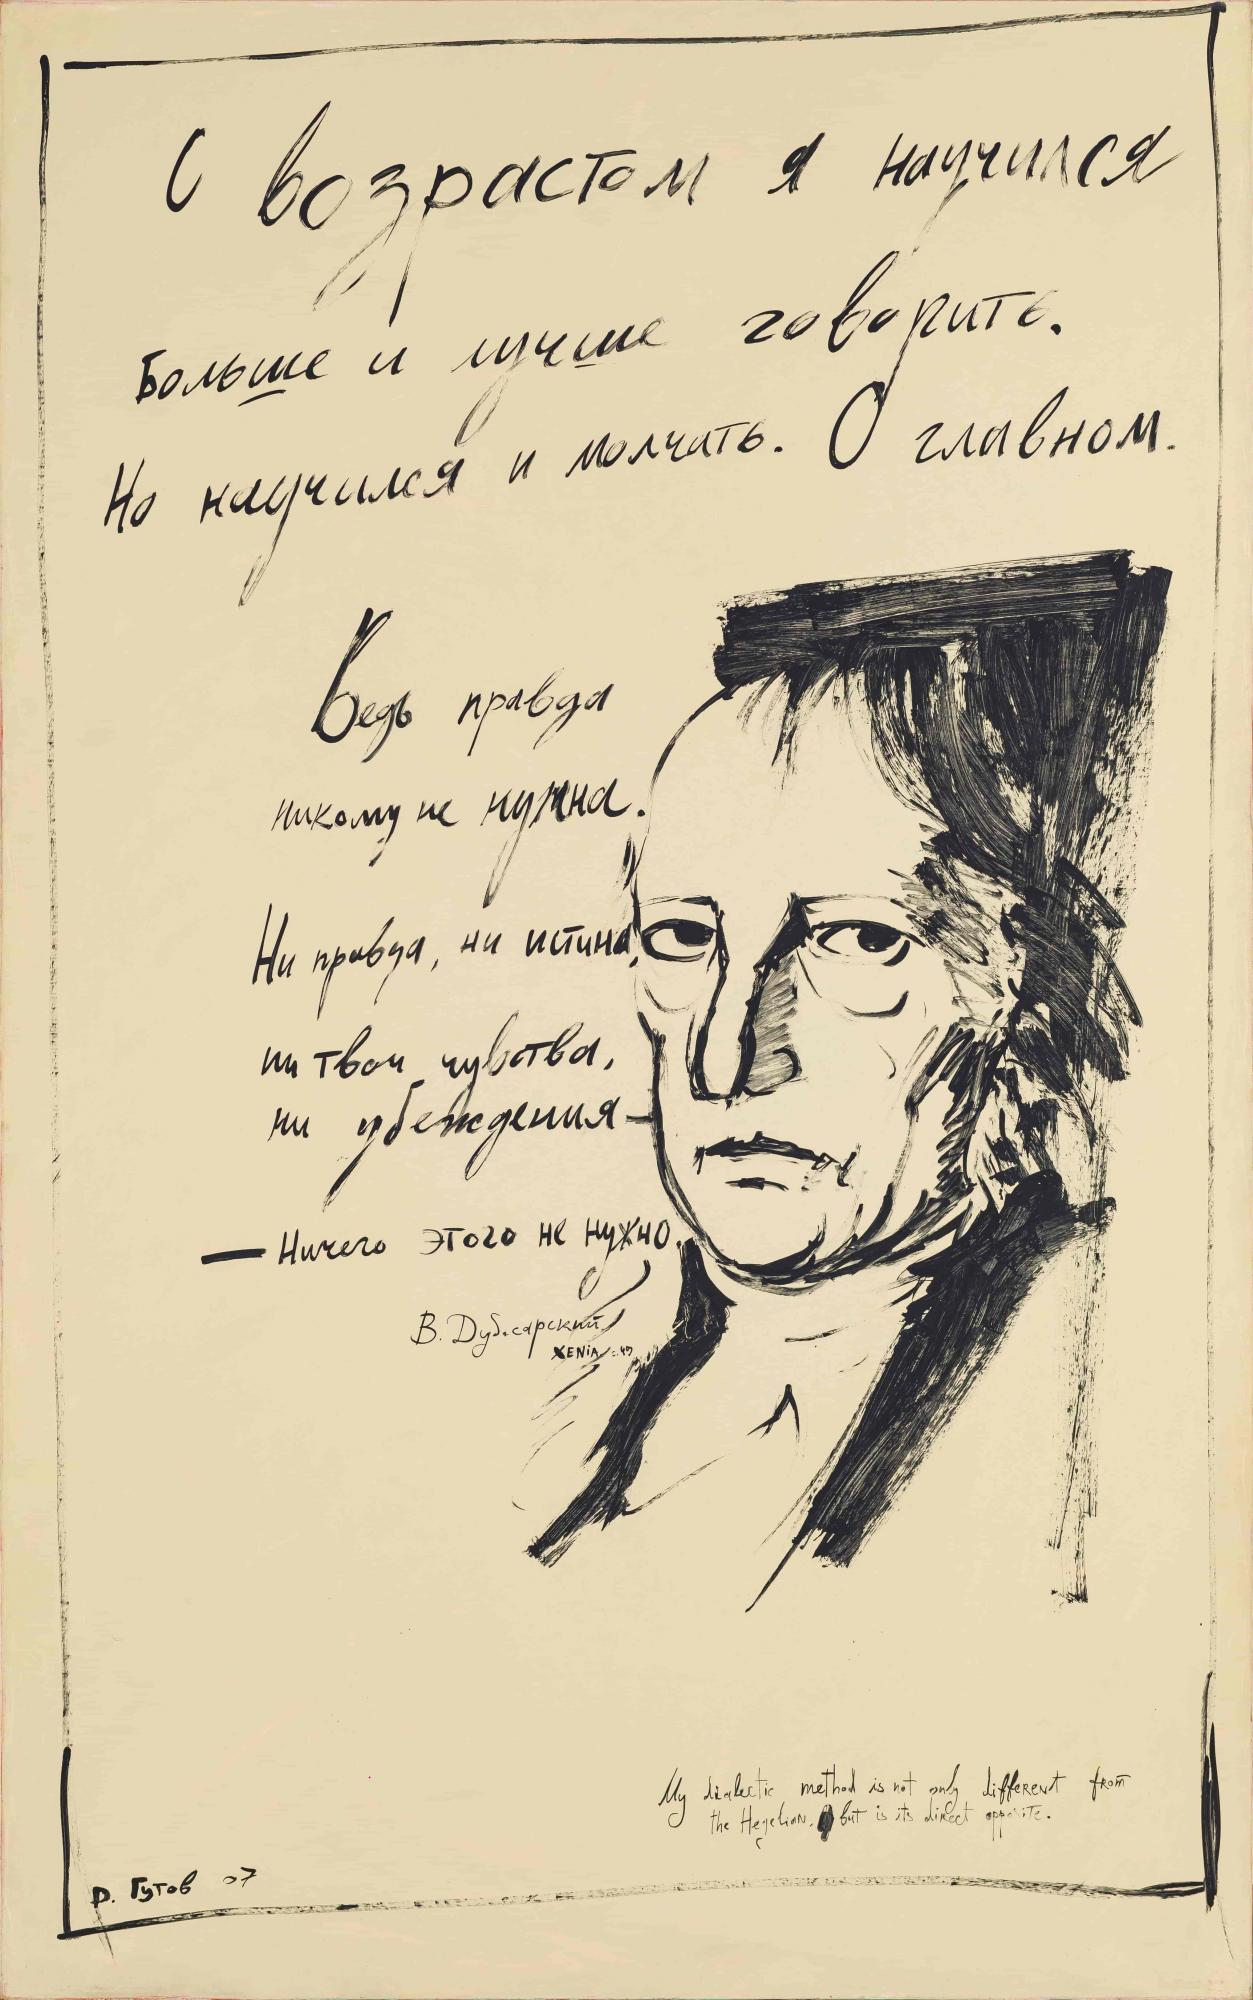 С возрастом я научился
больше и лучше говорить.
Но научился и молчать. О главном.
Ведь правда
никому не нужна.
Ни правда, ни истина,
ни твои чувства,
ни убеждения—
— Ничего этого не нужно.
В. Дубосарский
XENIA
My dialectic method is not only different from
the Hegelian, but is its direct opposite.
Д. Гутов 07